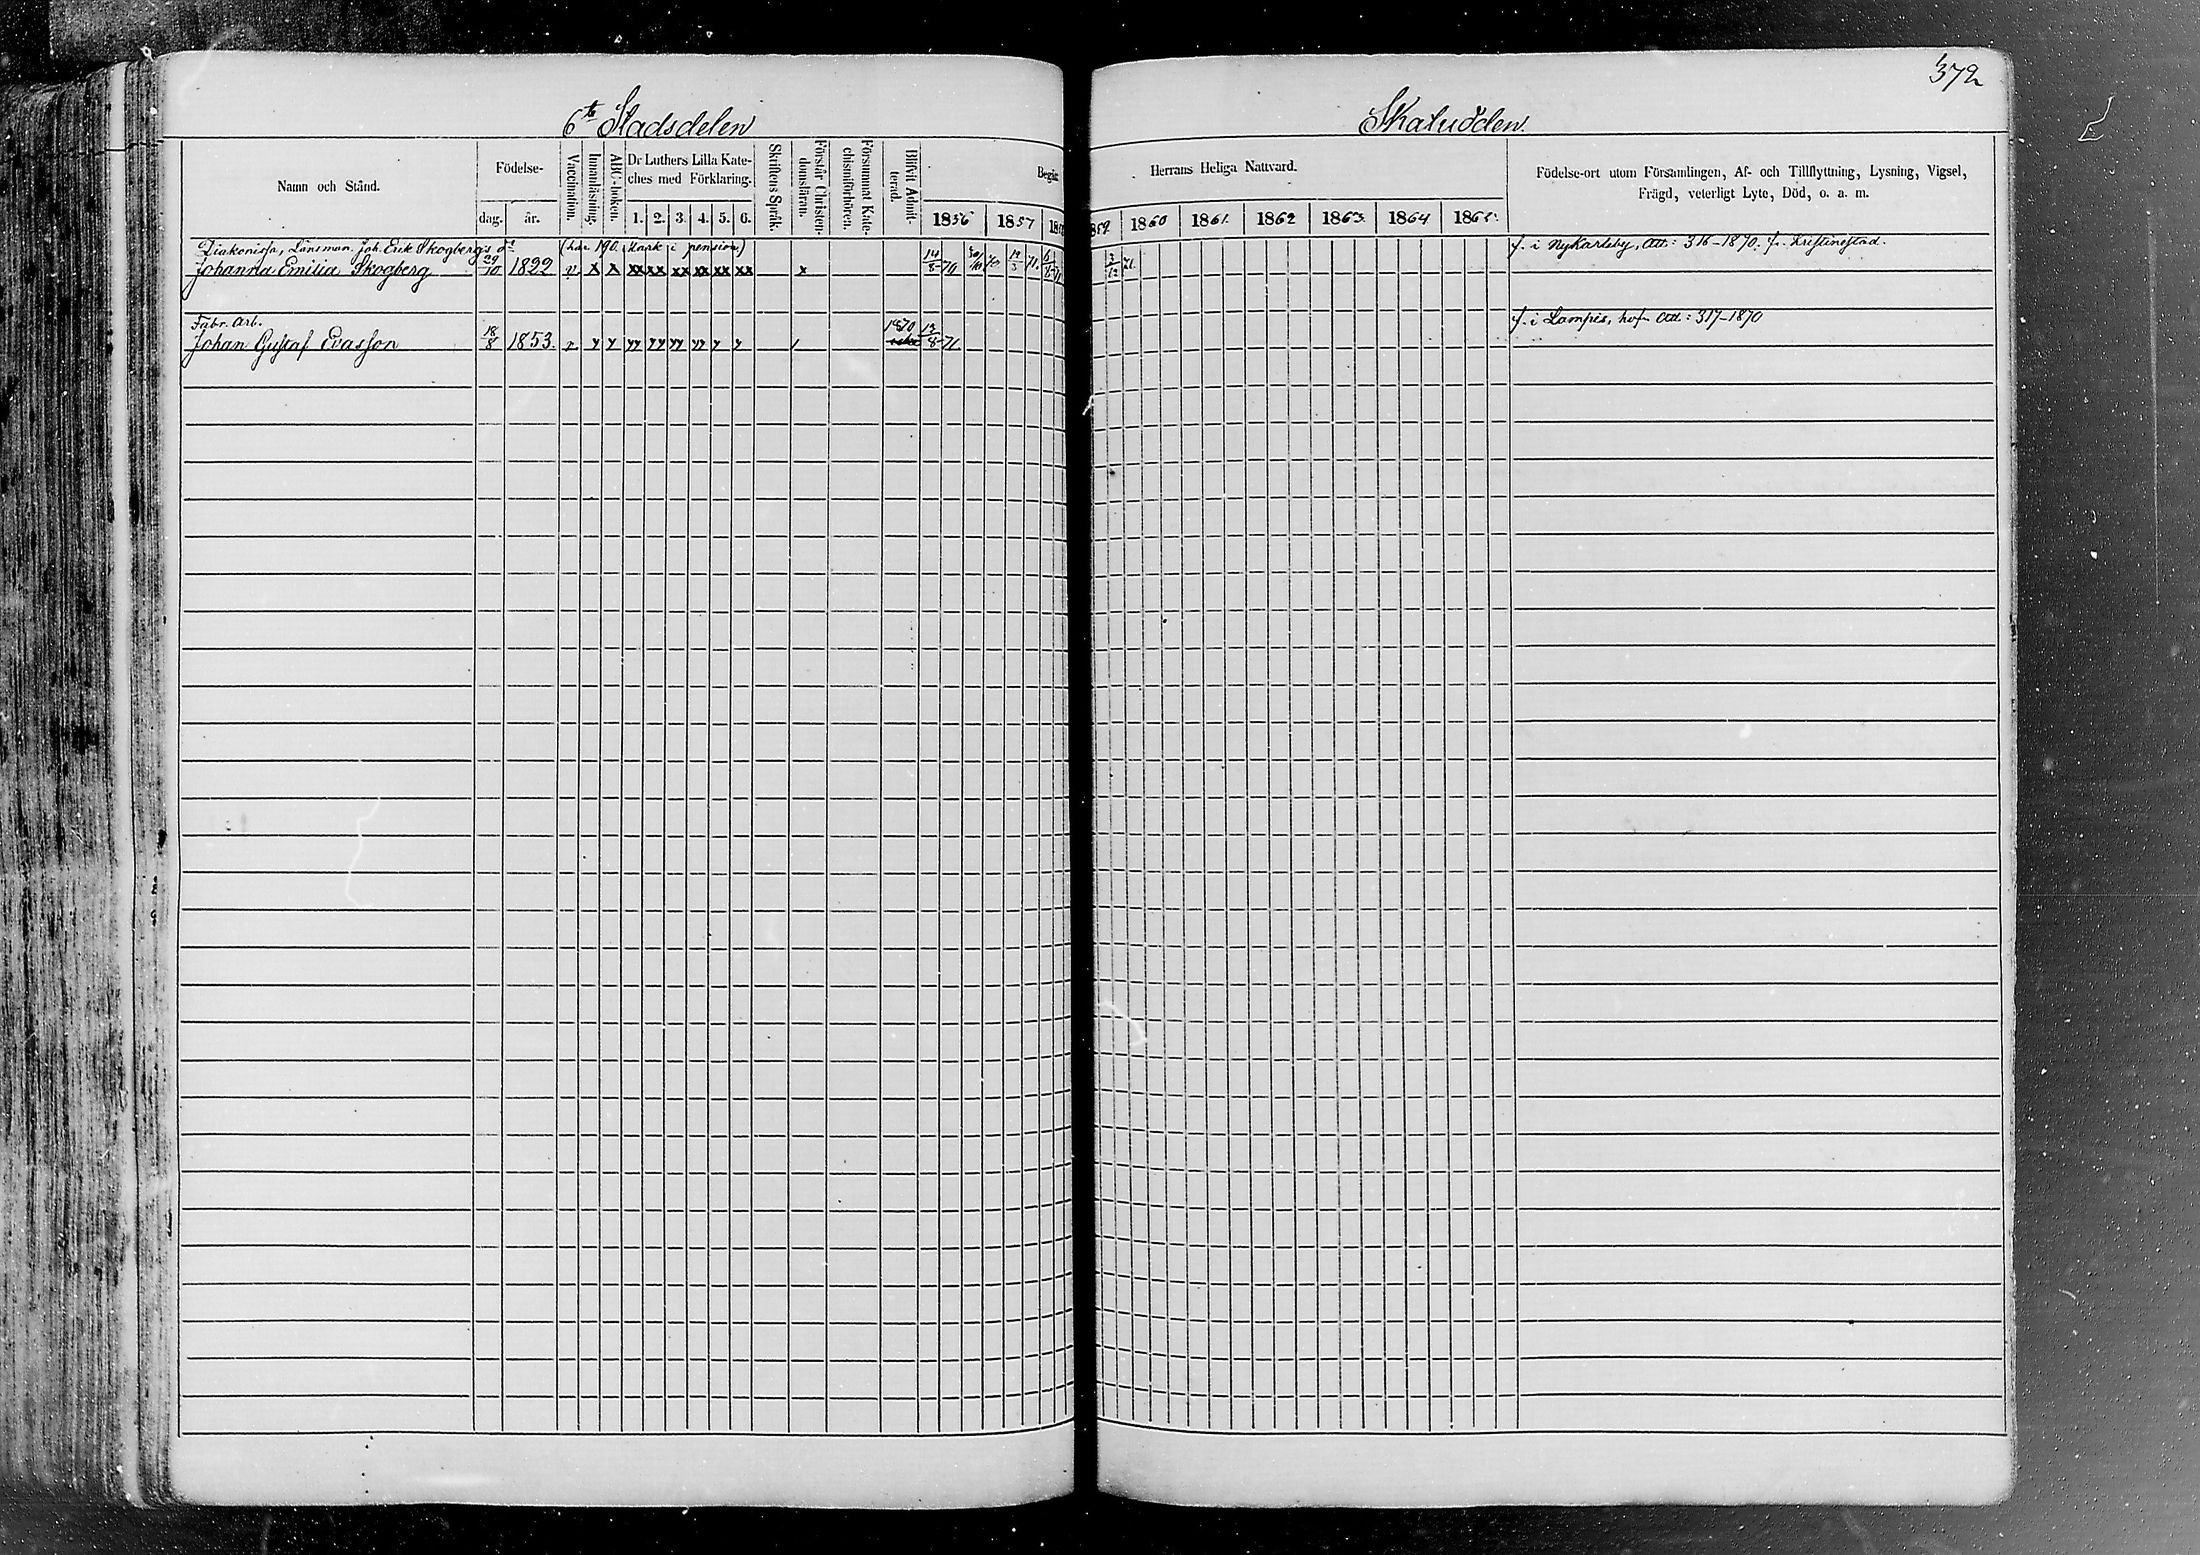 372
6te Stadsdelen
Skatudden.
Namn och Stånd.
Födelse-
dag. år.
Vaccination.
Innanläsning.
ABC-boken.
Dr Luthers Lilla Kate-
ches med Förklaring.
1. 2. 3. 4. 5. 6.
Skriftens Språk.
Förstår Christen-
domsläran.
Försummat Kate-
chismiförhören.
Blifvit Admit-
terad.
Begår
1856 1857
Herrans Heliga Nattvard.
859. 1860 1861. 1862 1863. 1864 1865.
Födelse-ort utom Församlingen, Af- och Tillflyttning, Lysning, Vigsel,
Frägd, veterligt Lyte, Död, o. a. m.
Diakonissa, Länsman. Joh. Erik Skogberg's dr (har 190 Mark i pension) f. i Nykarleby, Att: 316-1870. fr. Kristinestad.
Johanna Emilia Skogberg 29/10 1822 v x x xx xx xx xx xx xx x 14/8 70 30/10 70 12/3 71. 3/12 71.
Fabr. Arb. 1870 f. i Lampis, hof. Att: 317-1870
Johan Gustaf Evasson 18/8 1853. v y y yy yy yy yy y y 13/8 71.